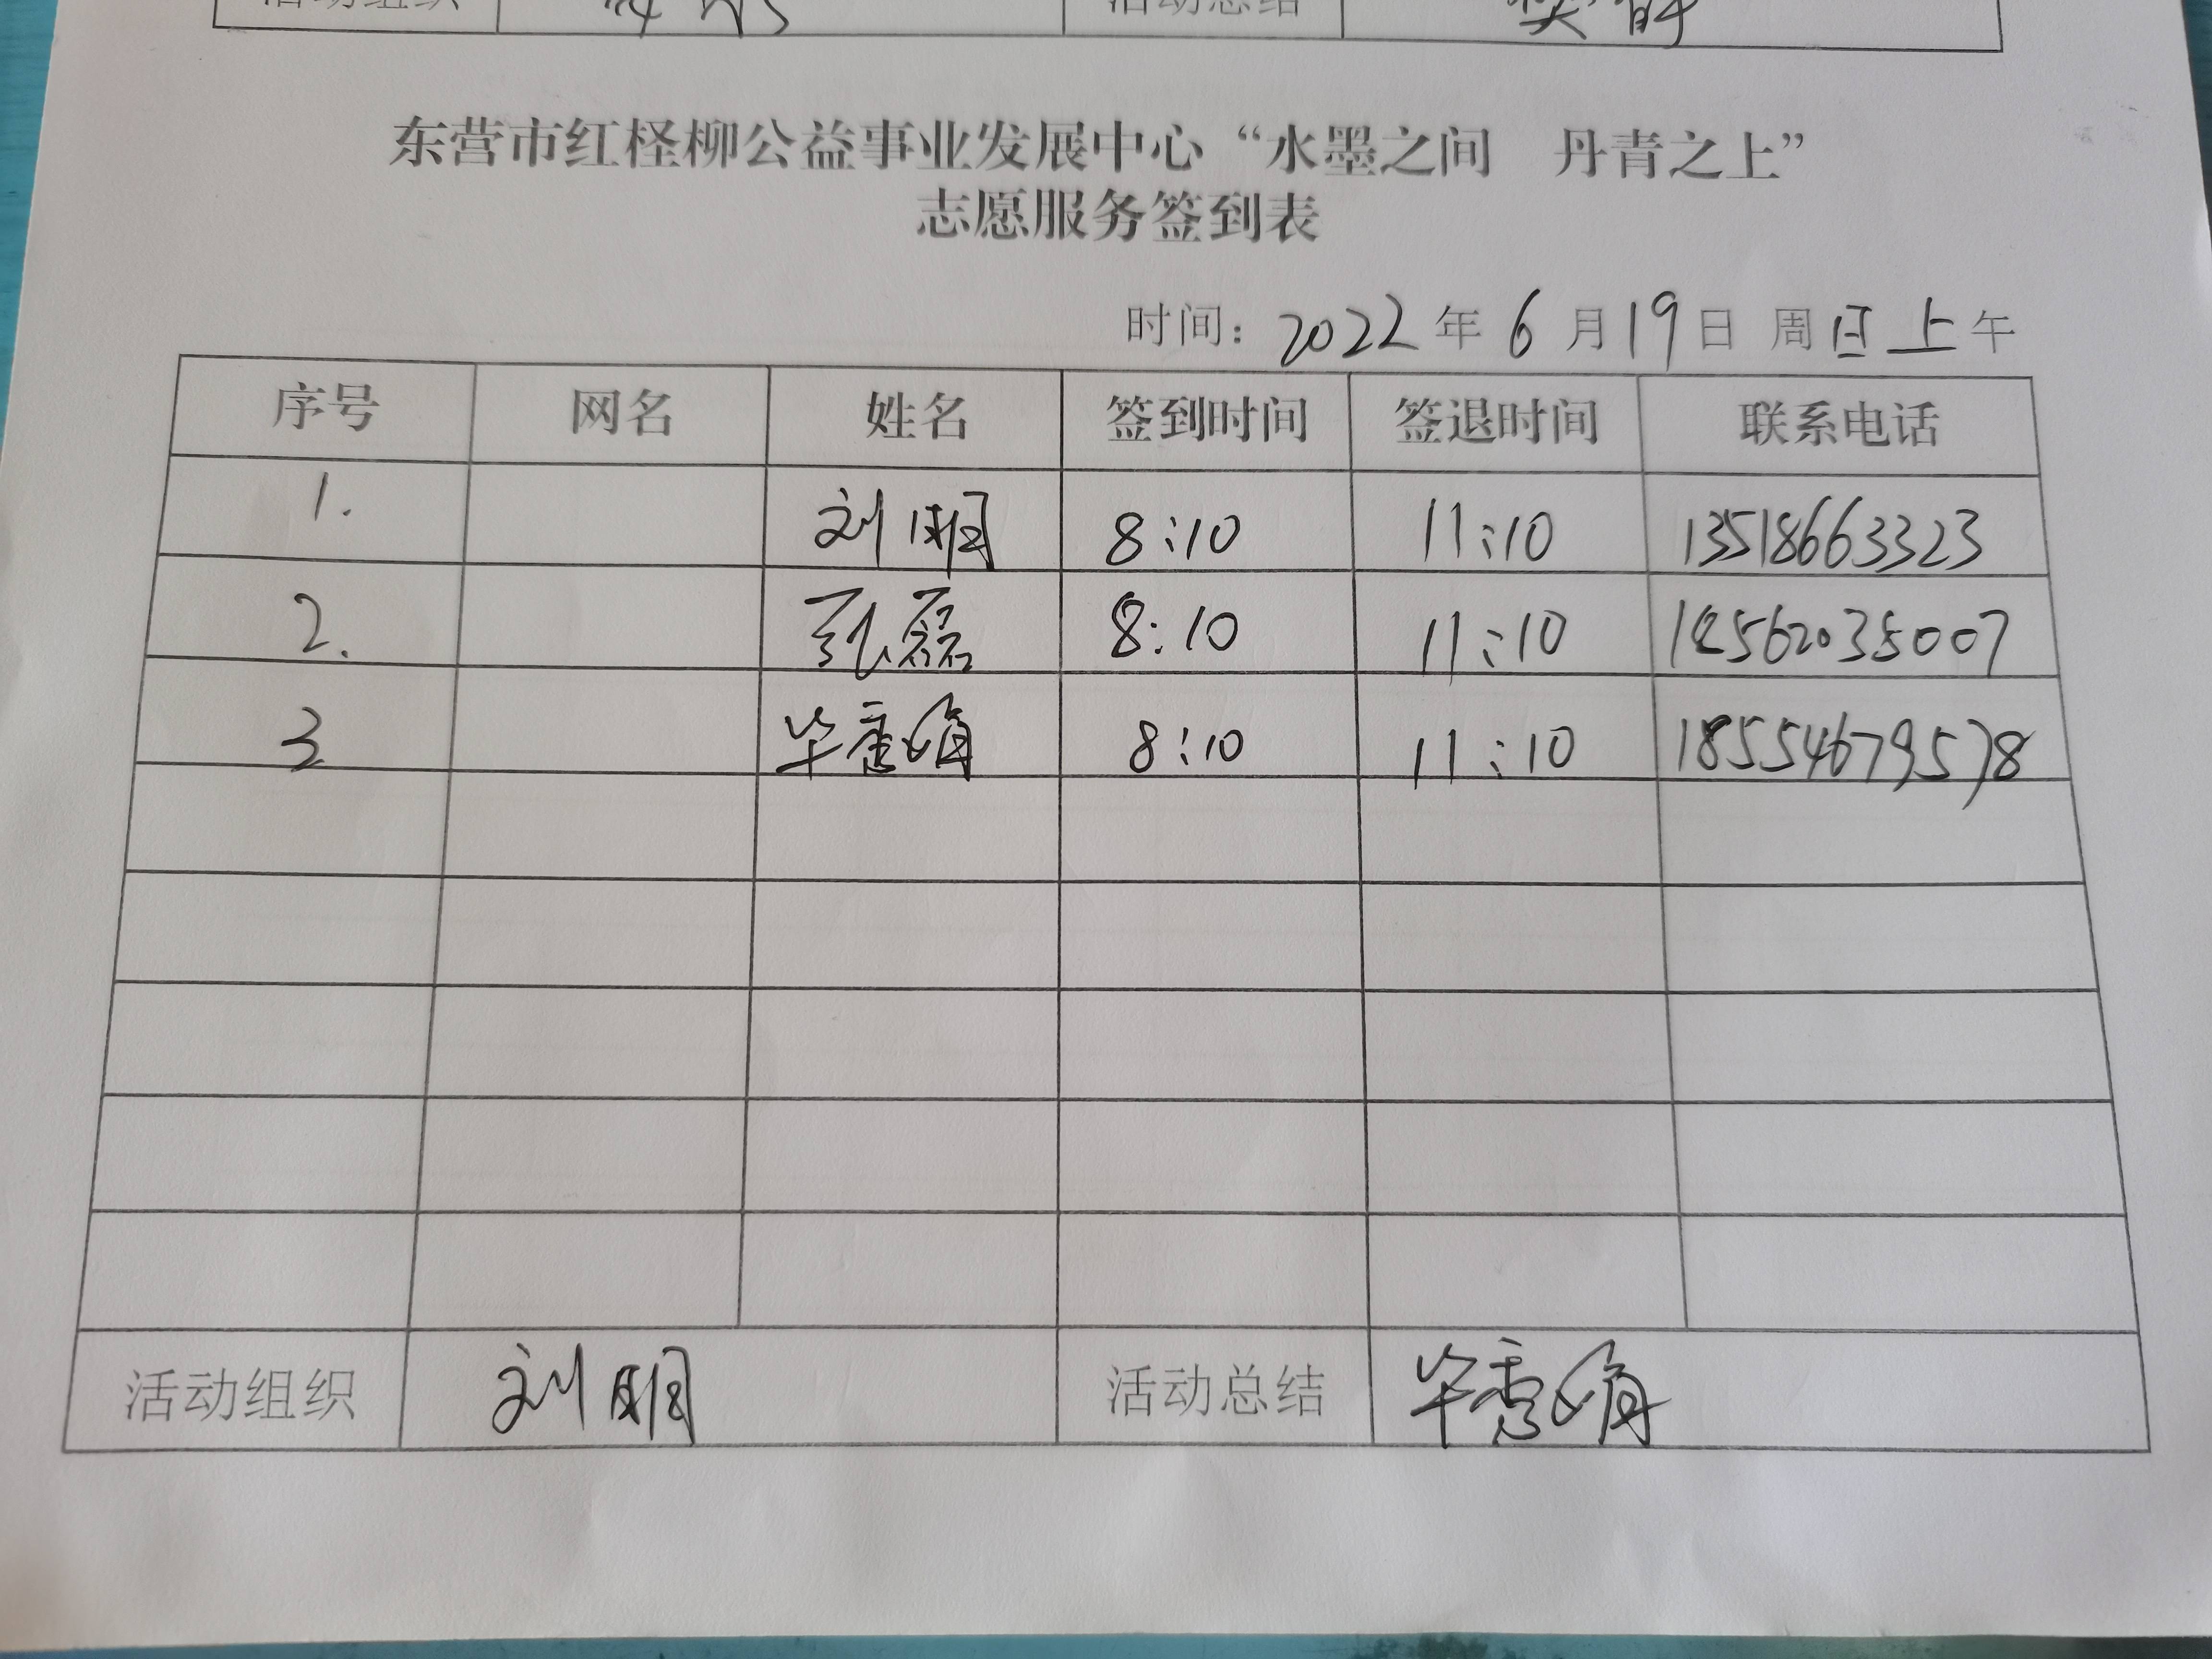 活动组织 活动总结 樊静
东营市红柽柳公益事业发展中心“水墨之间 丹青之上”
志愿服务签到表
时间：2022年6月19日 周日上午
序号 网名 姓名 签到时间 签退时间 联系电话
1. 刘明 8:10 11:10 13518663323
2. 张磊 8:10 11:10
3 毕秀娟 8:10 11:10 18554679578
活动组织 刘明 活动总结 毕秀娟